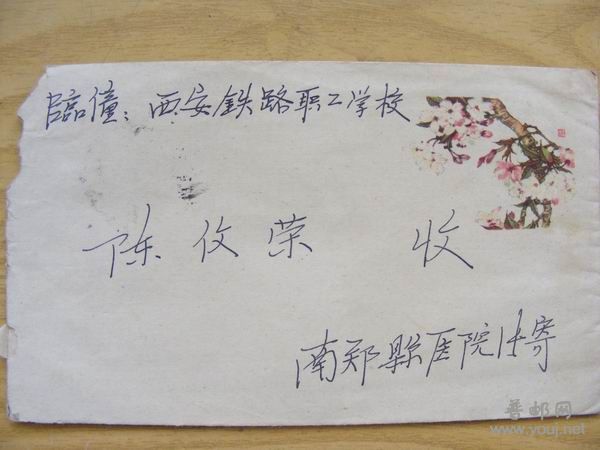 臨潼：西安铁路职工学校
陈 荣 收
南郑縣医院 寄
普邮网
www.youj.net